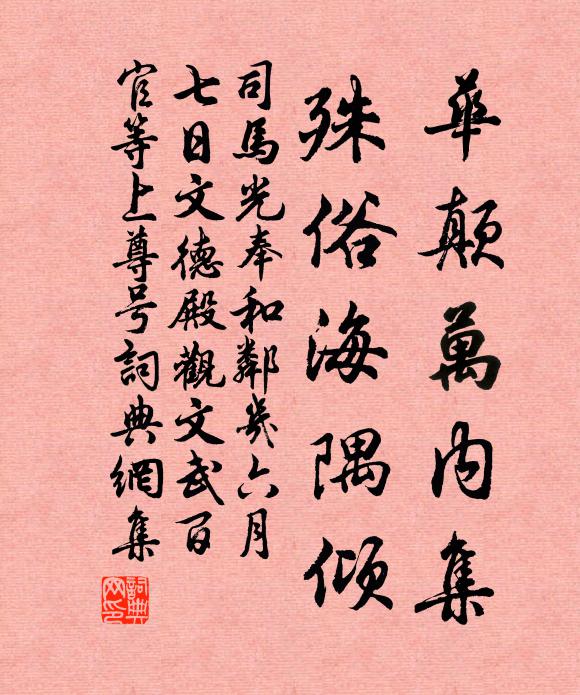 華顛萬內集
殊俗海隅傾
司馬光奉和鄰幾六月
七日文德殿觀文武百
官等上尊号詞典網集
詞典網印